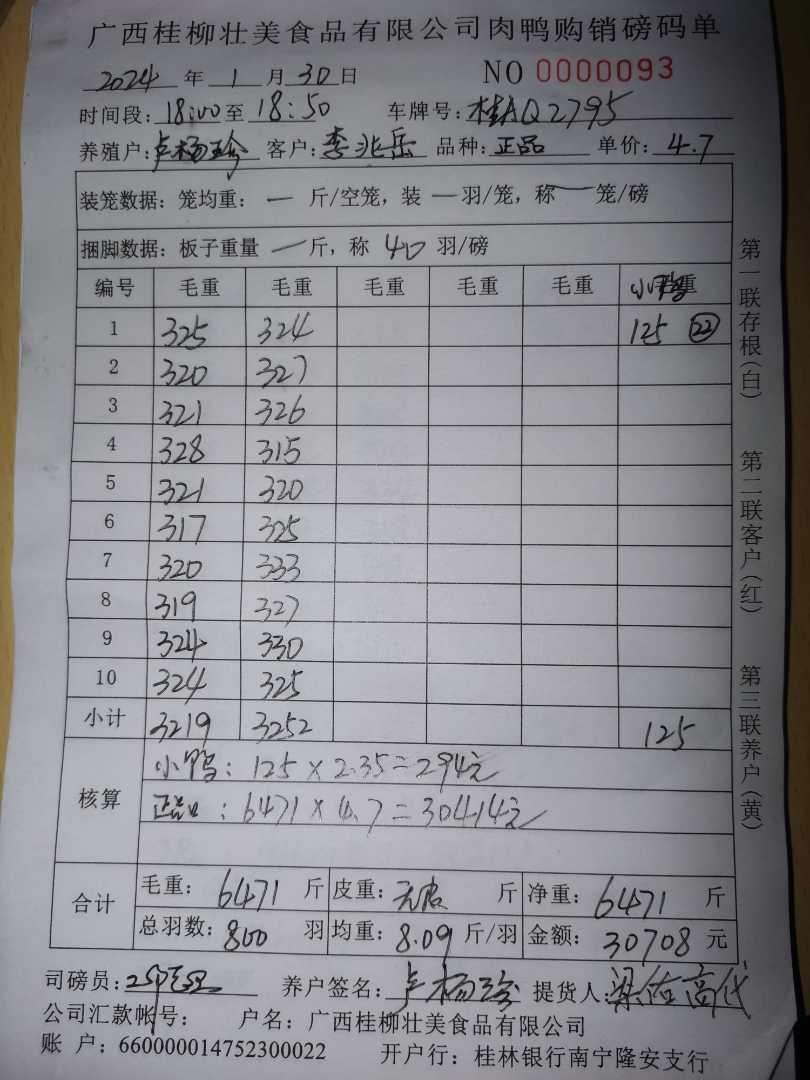 广西桂柳壮美食品有限公司肉鸭购销磅码单
2024 年 1 月 30 日 NO 0000093
时间段: 18:00 至 18:50 车牌号: 桂AQ2795
养殖户: 卢杨珍 客户: 李兆岳 品种: 正品 单价: 4.7
装笼数据: 笼均重: — 斤/空笼, 装 — 羽/笼, 称 — 笼/磅
捆脚数据: 板子重量 — 斤, 称 40 羽/磅
编号 毛重 毛重 毛重 毛重 毛重 小鸭 重
1 325 324 125 22
2 320 327
3 321 326
4 328 315
5 321 320
6 317 325
7 320 333
8 319 327
9 324 330
10 324 325
小计 3219 3252 125
核算
小鸭: 125×2.35=294元
正品: 6471×4.7=30414元
合计
毛重: 6471 斤 皮重: 斤 净重: 6471 斤
总羽数: 800 羽 均重: 8.09 斤/羽 金额: 30708 元
司磅员: 养户签名: 卢杨珍 提货人: 梁佑高代
公司汇款帐号: 户名: 广西桂柳壮美食品有限公司
账 户: 660000014752300022 开户行: 桂林银行南宁隆安支行
第一联存根(白)
第二联客户(红)
第三联养户(黄)